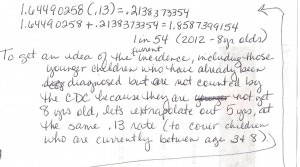 1.64490258 (.13) = .2138373354
1.64490258 + .2138373354 = 1.8587399154
1 in 54 (2012 - 8yr olds)
To get an idea of the current incidence, including those
younger children who have already been
diagnosed but are not counted by
the CDC because they are not yet
8 yrs old, lets extrapolate out 5 yrs, at
the same .13 rate (to cover children
who are currently between age 3 + 8).